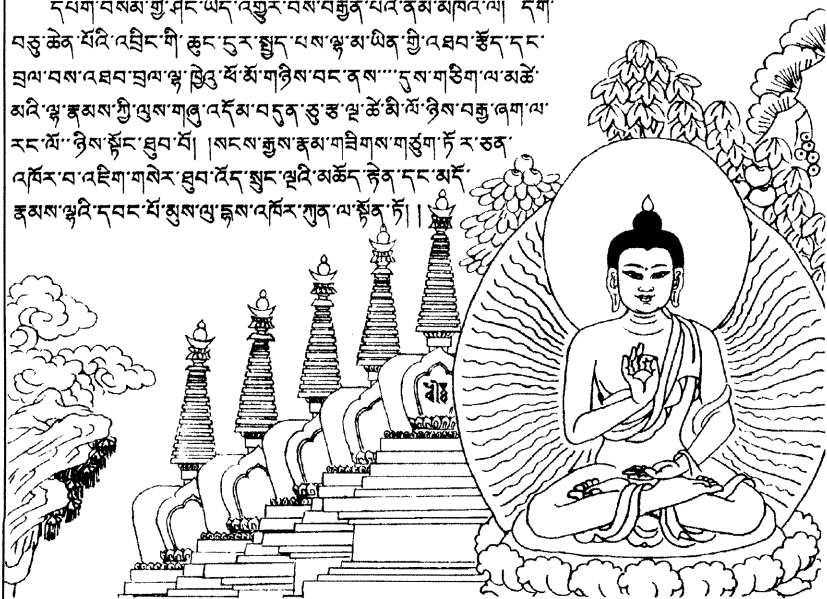 དཔག་བསམ་གྱི་ཤིང་ཡོད་འགྱུར་བས་བརྒྱན་པའི་ནམ་མཁའ་ལ། དག་
བཅུ་ཆེན་པོའི་འབྲིང་གི་ཆུང་ངུར་སྤྱད་པས་ལྷ་མ་ཡིན་གྱི་འཐབ་རྩོད་དང་
བྲལ་བས་འཐབ་བྲལ་ལྷ་ཁྱེའུ་ཕོ་མོ་གཉིས་བང་ནས་དུས་གཅིག་ལ་མཚེ་
མའི་ལྷ་རྣམས་ཀྱི་ལུས་གཞུ་འདོམ་བདུན་ཅུ་རྩ་ལྔ་ཚེ་མི་ལོ་ཉིས་བརྒྱ་ཞག་ལ་
རང་ལོ་ཉིས་སྟོང་ཐུབ་བོ། །སངས་རྒྱས་རྣམ་གཟིགས་གཙུག་ཏོ་ར་ཅན་
འཁོར་བ་འཇིག་གསེར་ཐུབ་འོད་སྲུང་ལྔའི་མཆོད་རྟེན་དང་མདོ་
རྣམས་ལྷའི་དབང་པོ་མུས་ལུ་རྣམས་འཁོར་ཀུན་ལ་སྟོན་ཏོ། །